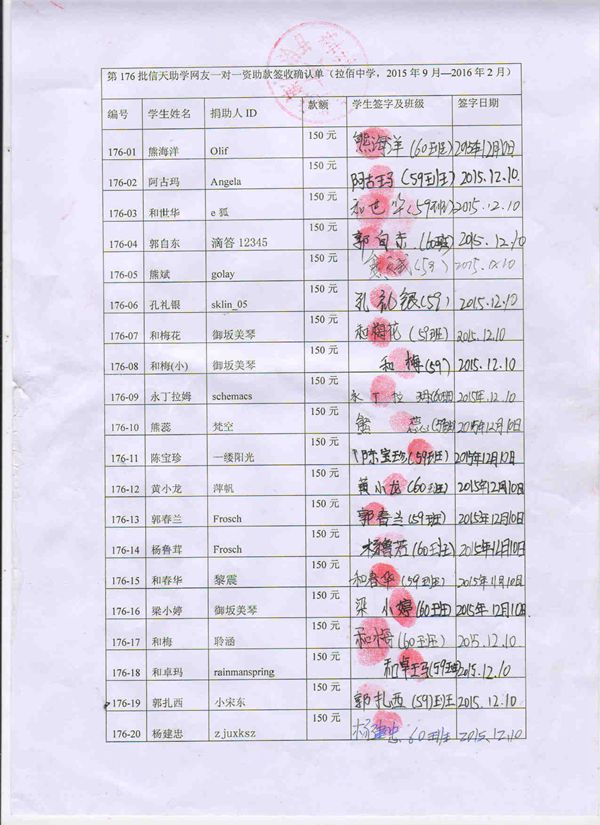 第 176 批信天助学网友一对一资助款签收确认单（拉佰中学，2015 年 9 月—2016 年 2 月）
编号 学生姓名 捐助人 ID 款额 学生签字及班级 签字日期
176-01 熊海洋 Olif 150 元 熊海洋(60班) 2015年12月10日
176-02 阿古玛 Angela 150 元 阿古玛(59班) 2015.12.10.
176-03 和世华 e 狐 150 元 和世华(59班) 2015.12.10
176-04 郭自东 滴答 12345 150 元 郭自东.(60班) 2015.12.10
176-05 熊斌 golay 150 元 熊斌(59) 2015.12.10
176-06 孔礼银 sklin_05 150 元 孔礼银(59) 2015.12.10
176-07 和梅花 御坂美琴 150 元 和梅花(59班) 2015.12.10
176-08 和梅(小) 御坂美琴 150 元 和梅(59) 2015.12.10
176-09 永丁拉姆 schemacs 150 元 永丁拉 2015年.12.10
176-10 熊蕊 梵空 150 元 熊蕊 2015年12月10日
176-11 陈宝珍 一缕阳光 150 元 陈宝珍(59班) 2015年12月10日
176-12 黄小龙 萍帆 150 元 黄小龙(60班) 2015年12月10日
176-13 郭春兰 Frosch 150 元 郭春兰(59班) 2015年12月10日
176-14 杨鲁茸 Frosch 150 元 杨鲁芳(60班) 2015年12月10日
176-15 和春华 黎震 150 元 和春华(59班) 2015年11月10日
176-16 梁小婷 御坂美琴 150 元 梁小婷(60班) 2015年12月10日
176-17 和梅 聆涵 150 元 和梅(60班) 2015.12.10
176-18 和卓玛 rainmanspring 150 元 和卓玛(59班) 2015.12.10
176-19 郭扎西 小宋东 150 元 郭扎西(59)班 2015.12.10
176-20 杨建忠 zjuxksz 150 元 杨建忠 60班 2015.12.10